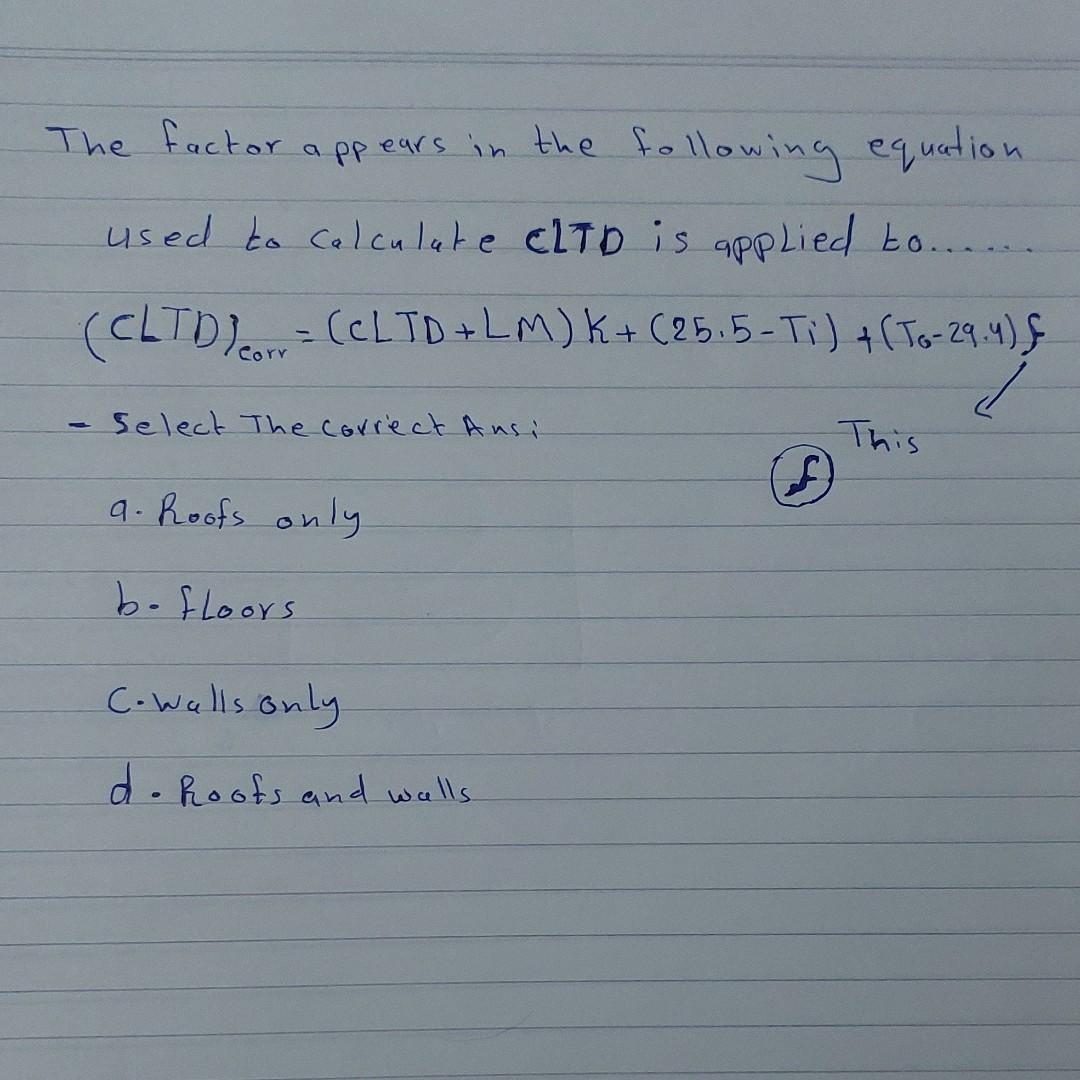 The factor appears in the following equation
used to calculate CLTD is applied to......
(CLTD)corr = (CLTD + LM) K + (25.5 - Ti) + (To - 29.4) f
- Select The correct Ans:
This
f
a. Roofs only
b. floors
C. walls only
d. Roofs and walls